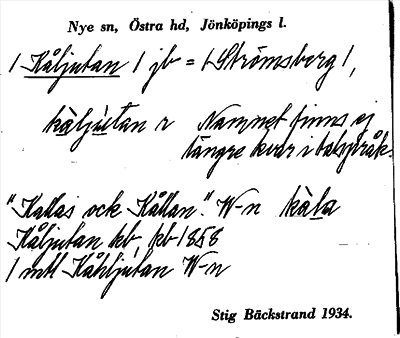 Nye sn, Östra hd, Jönköpings l.
1 Kåljutan 1 jb = (Strömsberg),
kàljùtan r Namnet finns ej
längre kvar i talspråk.
"Kallas ock Kållan". W-n kàla
Kåljutan hb, kb 1858
1 mtl Kåhljutan W-n
Stig Bäckstrand 1934.